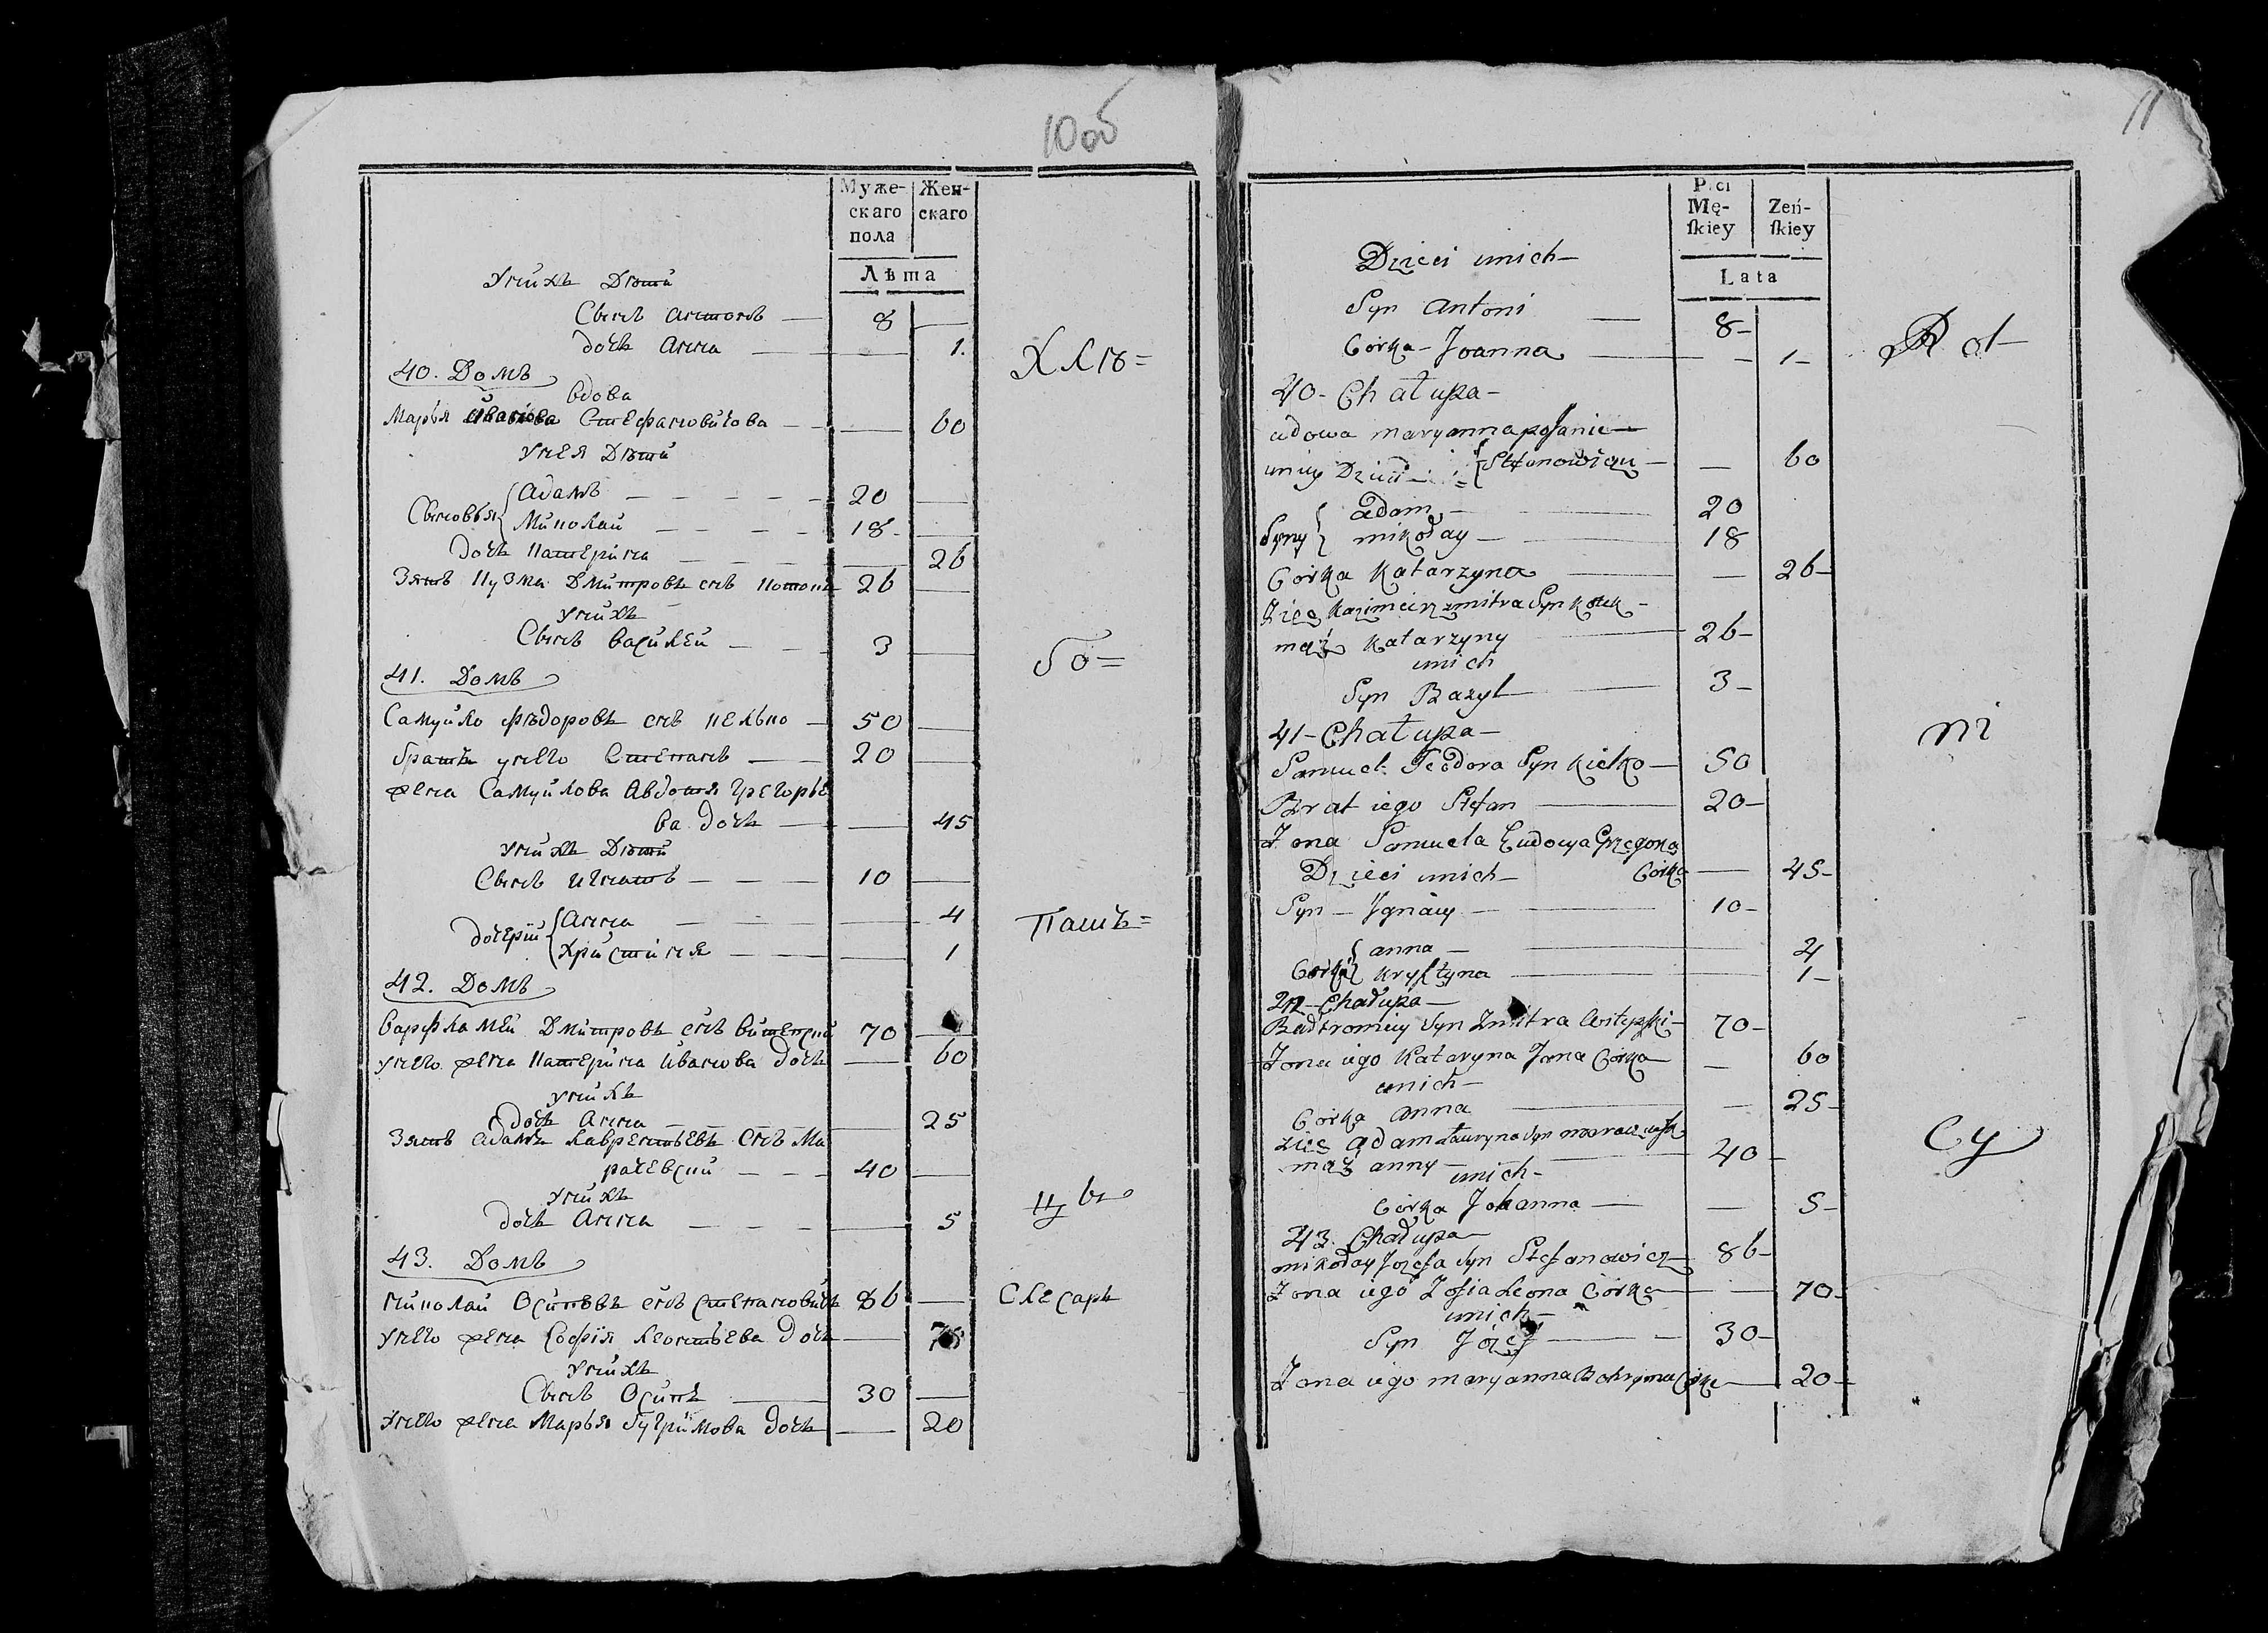 10об
Муже-
скаго
пола
Жен-
скаго
Лѣта
Унихъ Дѣти
Сынъ Антонъ — 8 —
дочь Анна — — 1.
40. Домъ
вдова
Марья Иванова Стефановичова — — 60
Унея Дѣти
Сыновья { Адамъ — 20 —
Миколай — 18 —
дочь Катерина — — 26
Зять Кузма Дмитровъ снъ Котокъ 26 —
Унихъ
Сынъ Василей — 3 —
41. Домъ
Самуйло Фѣдоровъ снъ Келько — 50 —
братъ унего Степанъ — 20
жена Самуйлова Авдотя Грегорье
ва дочь — — 45
Унихъ Дѣти
Сынъ Игнатъ — 10 —
дочерїи { Анна — — 4
Христиня — — 1
42. Домъ
Варфламей Дмитровъ снъ Витепский 70 —
унего жена Катерина Иванова дочь — 60
Унихъ
дочь Анна — — 25
Зять Адамъ Лаврентьевъ снъ Ма
рачевский — 40 —
Унихъ
дочь Анна — — 5
43. Домъ
Миколай Осиповъ снъ Степановичъ 86 —
унего жена Софїя Леонтьева дочь — 70
Унихъ
Сынъ Осипъ — 30 —
Унего жена Марья Бугримова дочь — 20
Хлѣ=
бо=
Пашъ=
цы
Слесарь
11
Płci
Mę-
ſkiey
Zeń-
ſkiey
Lata
Dzieci unich —
Syn Antoni — 8 —
Corka — Joanna — — 1 —
40 - Chałupa —
wdowa maryanna posanie —
uniey Dzieci — { Stefanowiczu — — 60
Syny { adam — 20
mikołay — 18
Corka Katarzyna — — 26 —
Zięć Kazimierz zmitra Syn Kotek —
mąż Katarzyny — 26 —
unich
Syn Bazyl — 3 —
41 - Chałupa —
Samuel Teodora Syn Kielko — 50
Brat iego Stefan — 20 —
Zona Samuela Eudocya Grzegorza
Dzieci unich — Corka — 45 —
Syn — Ignacy — 10 —
Corka { anna — — 4
Kryſtyna — — 1 —
42 - Chałupa —
Bałtromiey Syn Zmitra Witepski — 70 —
Zona iego Kataryna Jana Corka — 60
unich —
Corka anna — — 25 —
zięć adam Lauryna Syn maraczewski
mąż anny — 40 —
unich —
Corka Johanna — — 5 —
43. Chałupa —
mikołay Jozefa Syn Stefanowicz — 86 —
Zona iego Zofia Leona Corka — — 70 —
unich —
Syn Józef — 30 —
Zona iego maryanna Bohryma Corka — 20 —
Rol
ni
cy